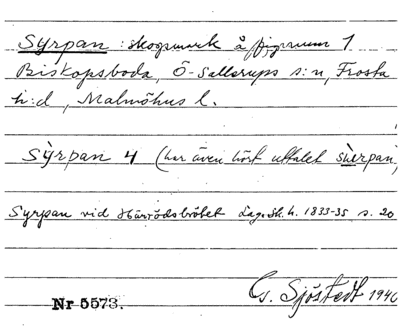 Syrpan : skogsmark å fignrum 1
Biskopsboda, Ö-Sallerups s:n, Frosta
h:d, Malmöhus l.
Sỳrpan 4 (har även hört uttalet sùerpan)
Syrpan vid Härrödsbröhet Lagsk. h. 1833-35 s. 20
Nr 5573.
G. Sjöstedt 1946